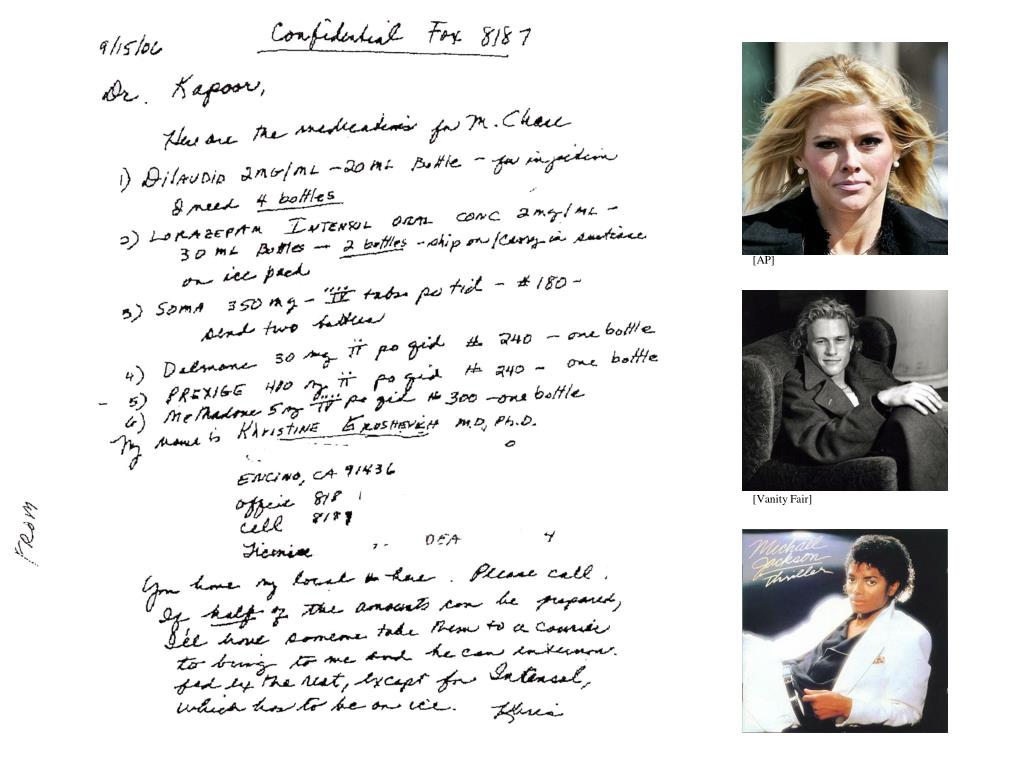 9/15/06
Confidential Fax 8187
Dr. Kapoor,
Here are the medications for M. Chase
1) DilAUDID 2MG/ML - 20 ML Bottle - for injection
I need 4 bottles
2) LORAZEPAM INTENSOL ORAL CONC 2mg/ML -
30 ML Bottles - 2 bottles - ship on/carry in suitcase
on ice pack
3) SOMA 350 mg - IV tabs po tid - #180 -
send two bottles
4) Dalmane 30 mg II po qid # 240 - one bottle
- 5) PREXIGE 400 mg II po qid # 240 - one bottle
6) Methadone 5 mg po qid # 300 - one bottle
My name is KHRISTINE EROSHEVICH M.D, Ph.D.
ENCINO, CA 91436
office 818
cell 8187
License DEA 4
FROM
You have my local # here. Please call.
If half of the amounts can be prepared,
I'll have someone take them to a courier
to bring to me and he can
fed ex the rest, except for Intensol,
which has to be on ice. Khris
[AP]
[Vanity Fair]
Michael
Jackson
Thriller